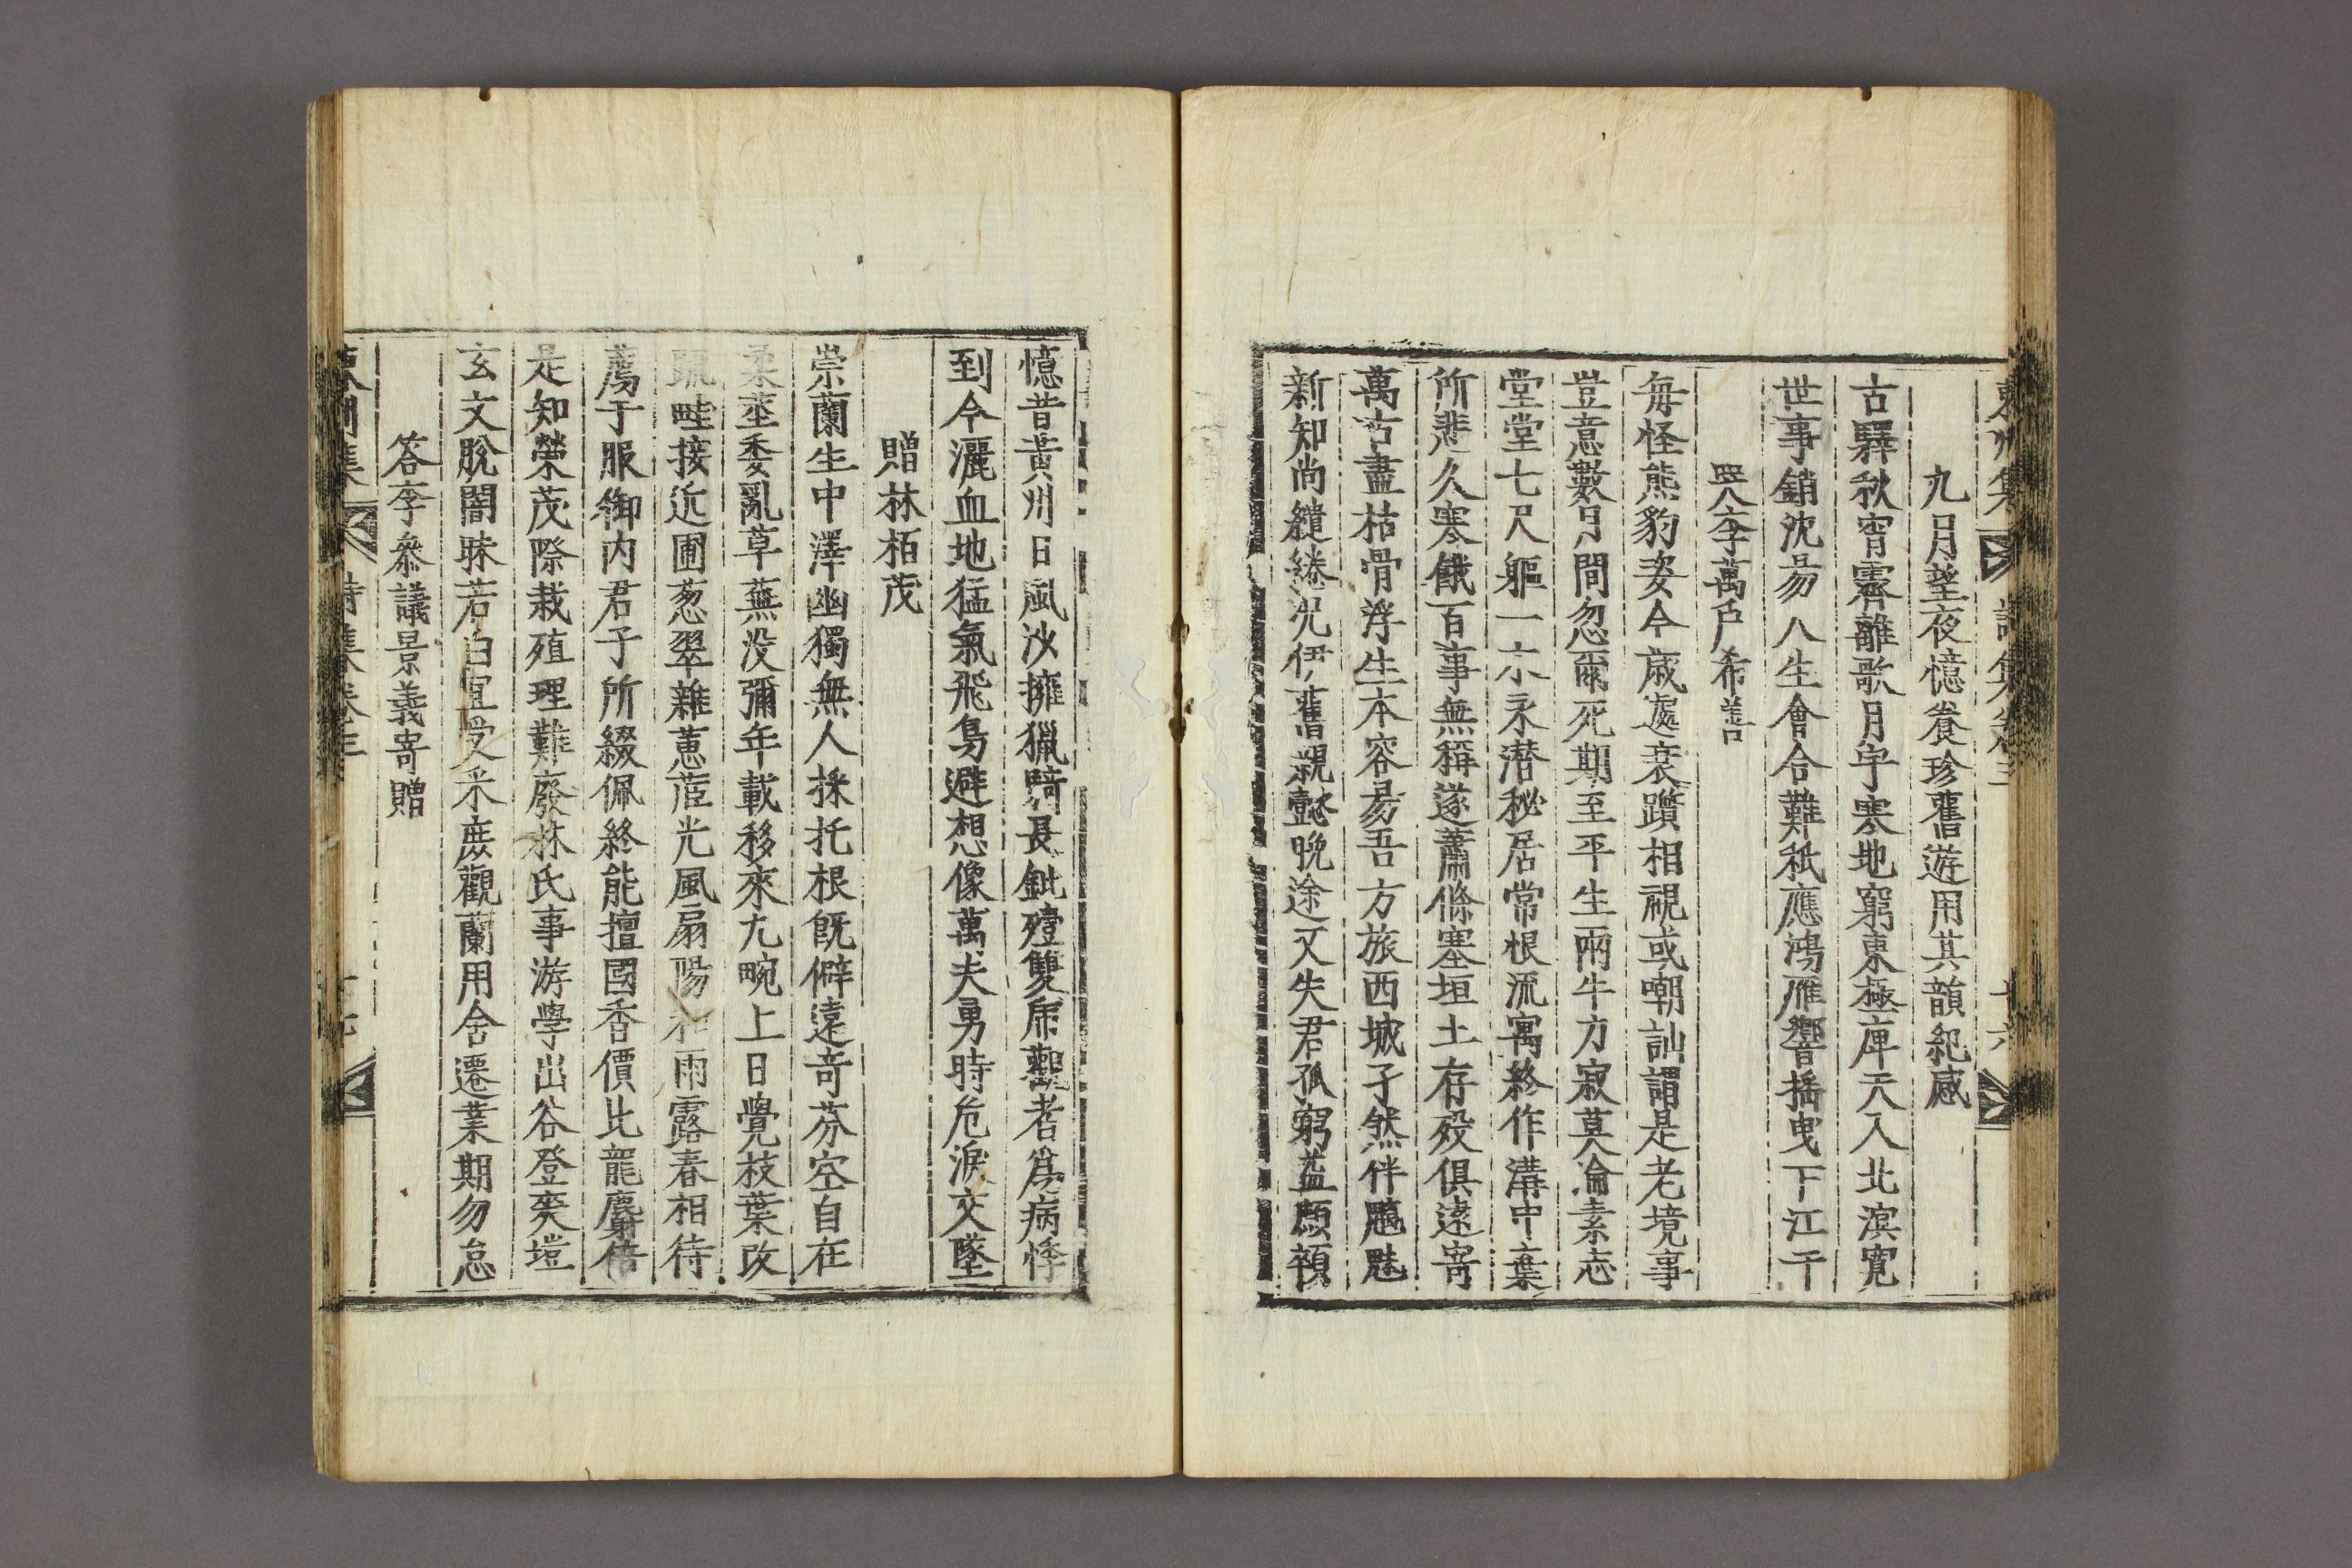 東州集 詩集卷三 十六
九月望夜憶養珍舊遊用其韻紀感
古驛秋宵霽離歌月宇寒地窮東極庳天入北溟寬
世事銷沈易人生會合難秖應鴻雁響搖曳下江干
哭李萬戶希善
每怪熊豹姿今歲遽衰躓相視或嘲訕謂是老境事
豈意數月間忽爾死期至平生兩牛力寂莫淪素志
堂堂七尺軀一木永潛秘居常恨流寓終作溝中棄
所悲久寒餓百事無稱遂蕭條塞垣土存歿俱遠寄
萬古盡枯骨浮生本容易吾方旅西城孑然伴魑魅
新知尚繾綣況伊舊親懿晚途又失君孤窮益顦顇
憶昔黃州日風沙擁獵騎長鈚殪雙虎觀者爲病悸
到今灑血地猛氣飛鳥避想像萬夫勇時危淚交墜
贈林栢茂
崇蘭生中澤幽獨無人採托根旣僻遠奇芬空自在
柔莖委亂草蕪沒彌年載移來九畹上日覺枝葉改
疏畦接近圃葱翠雜蕙茝光風扇陽和雨露春相待
薦于服御內君子所綴佩終能擅國香價比龍麝倍
是知榮茂際栽殖理難廢林氏事游學出谷登爽塏
玄文脫闇昧若白宜受采庶觀蘭用舍遷業期勿怠
答李叅議景義寄贈
東州集 詩集卷三 十七